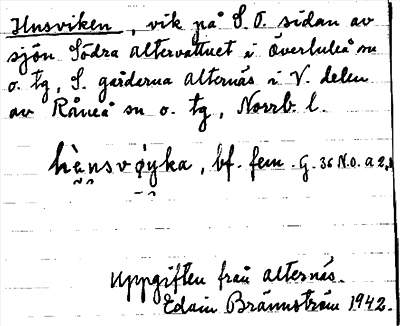 Husviken, vik på S.O. sidan av
sjön Södra Altervattnet i Överluleå sn
o. tg, S. gårderna Alternäs i V. delen
av Råneå sn o. tg, Norrb. l.
bf. fem. G. 36 N.O. a 2,
Uppgiften från Alternäs.
Edvin Brännström 1942.